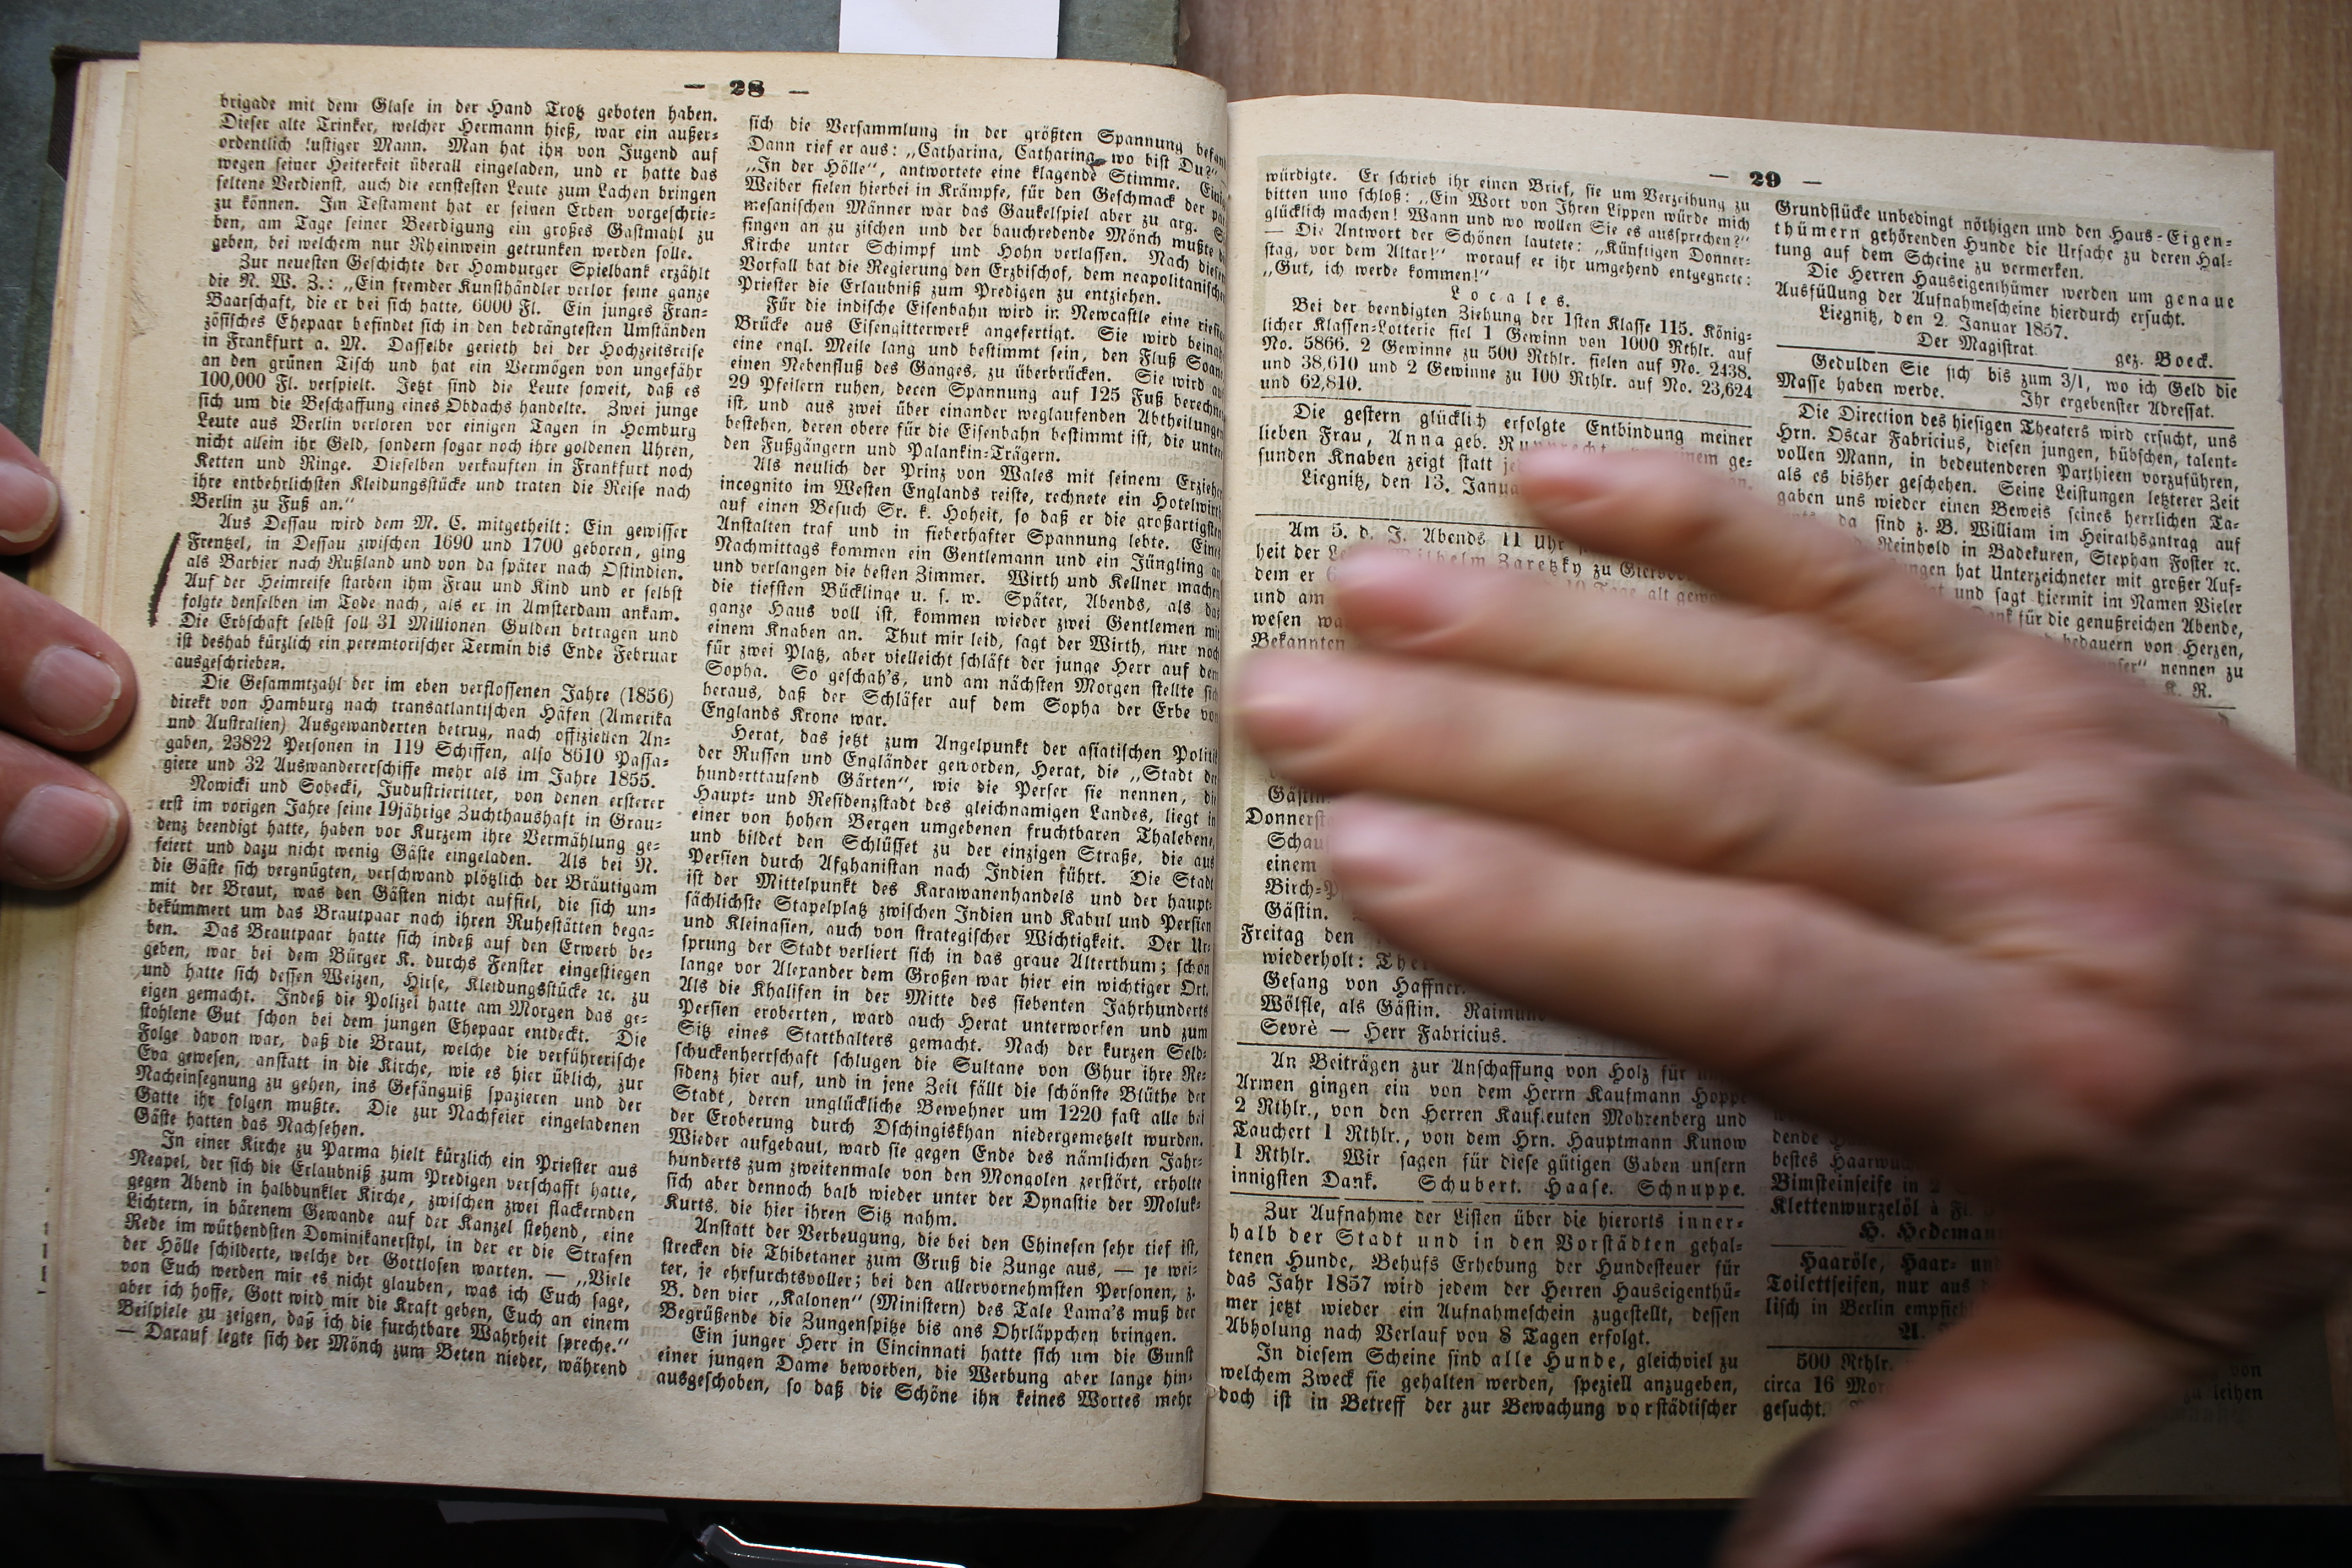 — 28 —
brigade mit dem Glase in der Hand Trotz geboten haben.
Dieser alte Trinker, welcher Hermann hieß, war ein außer-
ordentlich lustiger Mann. Man hat ihn von Jugend auf
wegen seiner Heiterkeit überall eingeladen, und er hatte das
seltene Verdienst, auch die ernstesten Leute zum Lachen bringen
zu können. Im Testament hat er seinen Erben vorgeschrie-
ben, am Tage seiner Beerdigung ein großes Gastmahl zu
geben, bei welchem nur Rheinwein getrunken werden solle.
Zur neuesten Geschichte der Homburger Spielbank erzählt
die R. W. Z.: „Ein fremder Kunsthändler verlor seine ganze
Baarschaft, die er bei sich hatte, 6000 Fl. Ein junges Fran-
zösisches Ehepaar befindet sich in den bedrängtesten Umständen
in Frankfurt a. M. Dasselbe gerieth bei der Hochzeitsreise
an den grünen Tisch und hat ein Vermögen von ungefähr
100,000 Fl. verspielt. Jetzt sind die Leute soweit, daß es
sich um die Beschaffung eines Obdachs handelte. Zwei junge
Leute aus Berlin verloren vor einigen Tagen in Homburg
nicht allein ihr Geld, sondern sogar noch ihre goldenen Uhren,
Ketten und Ringe. Dieselben verkauften in Frankfurt noch
ihre entbehrlichsten Kleidungsstücke und traten die Reise nach
Berlin zu Fuß an.“
Aus Dessau wird dem M. C. mitgetheilt: Ein gewisser
Frentzel, in Dessau zwischen 1690 und 1700 geboren, ging
als Barbier nach Rußland und von da später nach Ostindien.
Auf der Heimreise starben ihm Frau und Kind und er selbst
folgte denselben im Tode nach, als er in Amsterdam ankam.
Die Erbschaft selbst soll 31 Millionen Gulden betragen und
ist deshab kürzlich ein peremtorischer Termin bis Ende Februar
ausgeschrieben.
Die Gesammtzahl der im eben verflossenen Jahre (1856)
direkt von Hamburg nach transatlantischen Häfen (Amerika
und Australien) Ausgewanderten betrug, nach offiziellen An-
gaben, 23822 Personen in 119 Schiffen, also 8610 Passa-
giere und 32 Auswandererschiffe mehr als im Jahre 1855.
Nowicki und Sobecki, Industrieritter, von denen ersterer
erst im vorigen Jahre seine 19jährige Zuchthaushaft in Grau-
denz beendigt hatte, haben vor Kurzem ihre Vermählung ge-
feiert und dazu nicht wenig Gäste eingeladen. Als bei N.
die Gäste sich vergnügten, verschwand plötzlich der Bräutigam
mit der Braut, was den Gästen nicht auffiel, die sich un-
bekümmert um das Brautpaar nach ihren Ruhestätten bega-
ben. Das Brautpaar hatte sich indeß auf den Erwerb be-
geben, war bei dem Bürger K. durchs Fenster eingestiegen
und hatte sich dessen Weizen, Hirse, Kleidungsstücke ꝛc. zu
eigen gemacht. Indeß die Polizei hatte am Morgen das ge-
stohlene Gut schon bei dem jungen Ehepaar entdeckt. Die
Folge davon war, daß die Braut, welche die verführerische
Eva gewesen, anstatt in die Kirche, wie es hier üblich, zur
Nacheinsegnung zu gehen, ins Gefängniß spazieren und der
Gatte ihr folgen mußte. Die zur Nachfeier eingeladenen
Gäste hatten das Nachsehen.
In einer Kirche zu Parma hielt kürzlich ein Priester aus
Neapel, der sich die Erlaubniß zum Predigen verschafft hatte,
gegen Abend in halbdunkler Kirche, zwischen zwei flackernden
Lichtern, in härenem Gewande auf der Kanzel stehend, eine
Rede im wüthendsten Dominikanerstyl, in der er die Strafen
der Hölle schilderte, welche der Gottlosen warten. — „Viele
von Euch werden mir es nicht glauben, was ich Euch sage,
aber ich hoffe, Gott wird mir die Kraft geben, Euch an einem
Beispiele zu zeigen, daß ich die furchtbare Wahrheit spreche.“
— Darauf legte sich der Mönch zum Beten nieder, während
sich die Versammlung in der größten Spannung
Dann rief er aus: „Catharina, Catharina, wo bist Du?“
„In der Hölle“, antwortete eine klagende Stimme.
Weiber fielen hierbei in Krämpfe, für den Geschmack der
mesanischen Männer war das Gaukelspiel aber zu arg.
fingen an zu zischen und der bauchredende Mönch mußte
Kirche unter Schimpf und Hohn verlassen. Nach
Vorfall bat die Regierung den Erzbischof, dem
Priester die Erlaubniß zum Predigen zu entziehen.
Für die indische Eisenbahn wird in Newcastle eine
Brücke aus Eisengitterwerk angefertigt. Sie wird
eine engl. Meile lang und bestimmt sein, den Fluß
einen Nebenfluß des Ganges, zu überbrücken. Sie wird
29 Pfeilern ruhen, deren Spannung auf 125 Fuß
ist, und aus zwei über einander weglaufenden
bestehen, deren obere für die Eisenbahn bestimmt ist, die
den Fußgängern und Palankin-Trägern.
Als neulich der Prinz von Wales mit seinem
incognito im Westen Englands reiste, rechnete ein
auf einen Besuch Sr. k. Hoheit, so daß er die großartigsten
Anstalten traf und in fieberhafter Spannung lebte.
Nachmittags kommen ein Gentlemann und ein Jüngling
und verlangen die besten Zimmer. Wirth und Kellner machen
die tiefsten Bücklinge u. s. w. Später, Abends, als das
ganze Haus voll ist, kommen wieder zwei Gentlemen mit
einem Knaben an. Thut mir leid, sagt der Wirth, nur noch
für zwei Platz, aber vielleicht schläft der junge Herr auf dem
Sopha. So geschah's, und am nächsten Morgen stellte sich
heraus, daß der Schläfer auf dem Sopha der Erbe von
Englands Krone war.
Herat, das jetzt zum Angelpunkt der asiatischen Politik
der Russen und Engländer geworden, Herat, die „Stadt der
hunderttausend Gärten“, wie die Perser sie nennen, die
Haupt- und Residenzstadt des gleichnamigen Landes, liegt in
einer von hohen Bergen umgebenen fruchtbaren Thalebene,
und bildet den Schlüssel zu der einzigen Straße, die aus
Persien durch Afghanistan nach Indien führt. Die Stadt
ist der Mittelpunkt des Karawanenhandels und der haupt-
sächlichste Stapelplatz zwischen Indien und Kabul und Persien
und Kleinasien, auch von strategischer Wichtigkeit. Der Ur-
sprung der Stadt verliert sich in das graue Alterthum; schon
lange vor Alexander dem Großen war hier ein wichtiger Ort.
Als die Khalifen in der Mitte des siebenten Jahrhunderts
Persien eroberten, ward auch Herat unterworfen und zum
Sitz eines Statthalters gemacht. Nach der kurzen Seld-
schuckenherrschaft schlugen die Sultane von Ghur ihre Re-
sidenz hier auf, und in jene Zeit fällt die schönste Blüthe der
Stadt, deren unglückliche Bewohner um 1220 fast alle bei
der Eroberung durch Dschingiskhan niedergemetzelt wurden.
Wieder aufgebaut, ward sie gegen Ende des nämlichen Jahr-
hunderts zum zweitenmale von den Mongolen zerstört, erholte
sich aber dennoch balb wieder unter der Dynastie der Moluk-
Kurts, die hier ihren Sitz nahm.
Anstatt der Verbeugung, die bei den Chinesen sehr tief ist,
strecken die Thibetaner zum Gruß die Zunge aus, — je wei-
ter, je ehrfurchtsvoller; bei den allervornehmsten Personen, z.
B. den vier „Kalonen“ (Ministern) des Tale Lama's muß der
Begrüßende die Zungenspitze bis ans Ohrläppchen bringen.
Ein junger Herr in Cincinnati hatte sich um die Gunst
einer jungen Dame beworben, die Werbung aber lange hin-
ausgeschoben, so daß die Schöne ihn keines Wortes mehr
— 29 —
würdigte. Er schrieb ihr einen Brief, sie um Verzeihung zu
bitten uno schloß: „Ein Wort von Ihren Lippen würde mich
glücklich machen! Wann und wo wollen Sie es aussprechen?“
— Die Antwort der Schönen lautete: „Künftigen Donner-
stag, vor dem Altar!“ worauf er ihr umgehend entgegnete:
„Gut, ich werde kommen!“
Locales.
Bei der beendigten Ziehung der 1sten Klasse 115. König-
licher Klassen-Lotterie fiel 1 Gewinn von 1000 Rthlr. auf
No. 5866. 2 Gewinne zu 500 Rthlr. fielen auf No. 2438.
und 38,610 und 2 Gewinne zu 100 Rthlr. auf No. 23,624
und 62,810.
Die gestern glücklich erfolgte Entbindung meiner
lieben Frau, Anna geb. einem ge-
sunden Knaben zeigt statt
Liegnitz, den 13.
Am 5. d. J. Abends 11 Uhr
heit der Wilhelm Zaretzky zu
dem er 10 Tage alt
und am
wesen
Bekannten
Gästin.
Donnerst
Schau
einem
Birch-P
Gästin.
Freitag den
wiederholt:
Gesang von Haffner.
Wölfle, als Gästin.
Sevrè — Herr Fabricius.
An Beiträgen zur Anschaffung von Holz für
Armen gingen ein von dem Herrn Kaufmann Hoppe
2 Rthlr., von den Herren Kaufleuten Mohrenberg und
Tauchert 1 Rthlr., von dem Hrn. Hauptmann Kunow
1 Rthlr. Wir sagen für diese gütigen Gaben unsern
innigsten Dank. Schubert. Haase. Schnuppe.
Zur Aufnahme der Listen über die hierorts inner-
halb der Stadt und in den Vorstädten gehal-
tenen Hunde, Behufs Erhebung der Hundesteuer für
das Jahr 1857 wird jedem der Herren Hauseigenthü-
mer jetzt wieder ein Aufnahmeschein zugestellt, dessen
Abholung nach Verlauf von 8 Tagen erfolgt.
In diesem Scheine sind alle Hunde, gleichviel zu
welchem Zweck sie gehalten werden, speziell anzugeben,
doch ist in Betreff der zur Bewachung vorstädtischer
Grundstücke unbedingt nöthigen und den Haus-Eigen-
thümern gehörenden Hunde die Ursache zu deren Hal-
tung auf dem Scheine zu vermerken.
Die Herren Hauseigenthümer werden um genaue
Ausfüllung der Aufnahmescheine hierdurch ersucht.
Liegnitz, den 2. Januar 1857.
Der Magistrat
gez. Boeck.
Gedulden Sie sich bis zum 3/1, wo ich Geld die
Masse haben werde. Ihr ergebenster Adressat.
Die Direction des hiesigen Theaters wird ersucht, uns
Hrn. Oscar Fabricius, diesen jungen, hübschen, talent-
vollen Mann, in bedeutenderen Parthieen vorzuführen,
als es bisher geschehen. Seine Leistungen letzterer Zeit
gaben uns wieder einen Beweis seines herrlichen Ta-
da sind z. B. William im Heirathsantrag auf
Reinhold in Badekuren, Stephan Foster ꝛc.
hat Unterzeichneter mit großer Auf-
und sagt hiermit im Namen Vieler
für die genußreichen Abende,
bedauern von Herzen,
nennen zu
K. R.
bestes
Bimsteinseife in 2
Klettenwurzelöl à Fl.
H. Hedeman
Haaröle, Haar-
Toilettseifen, nur aus
lisch in Berlin
500 Rthlr. von
circa 16 zu leihen
gesucht.